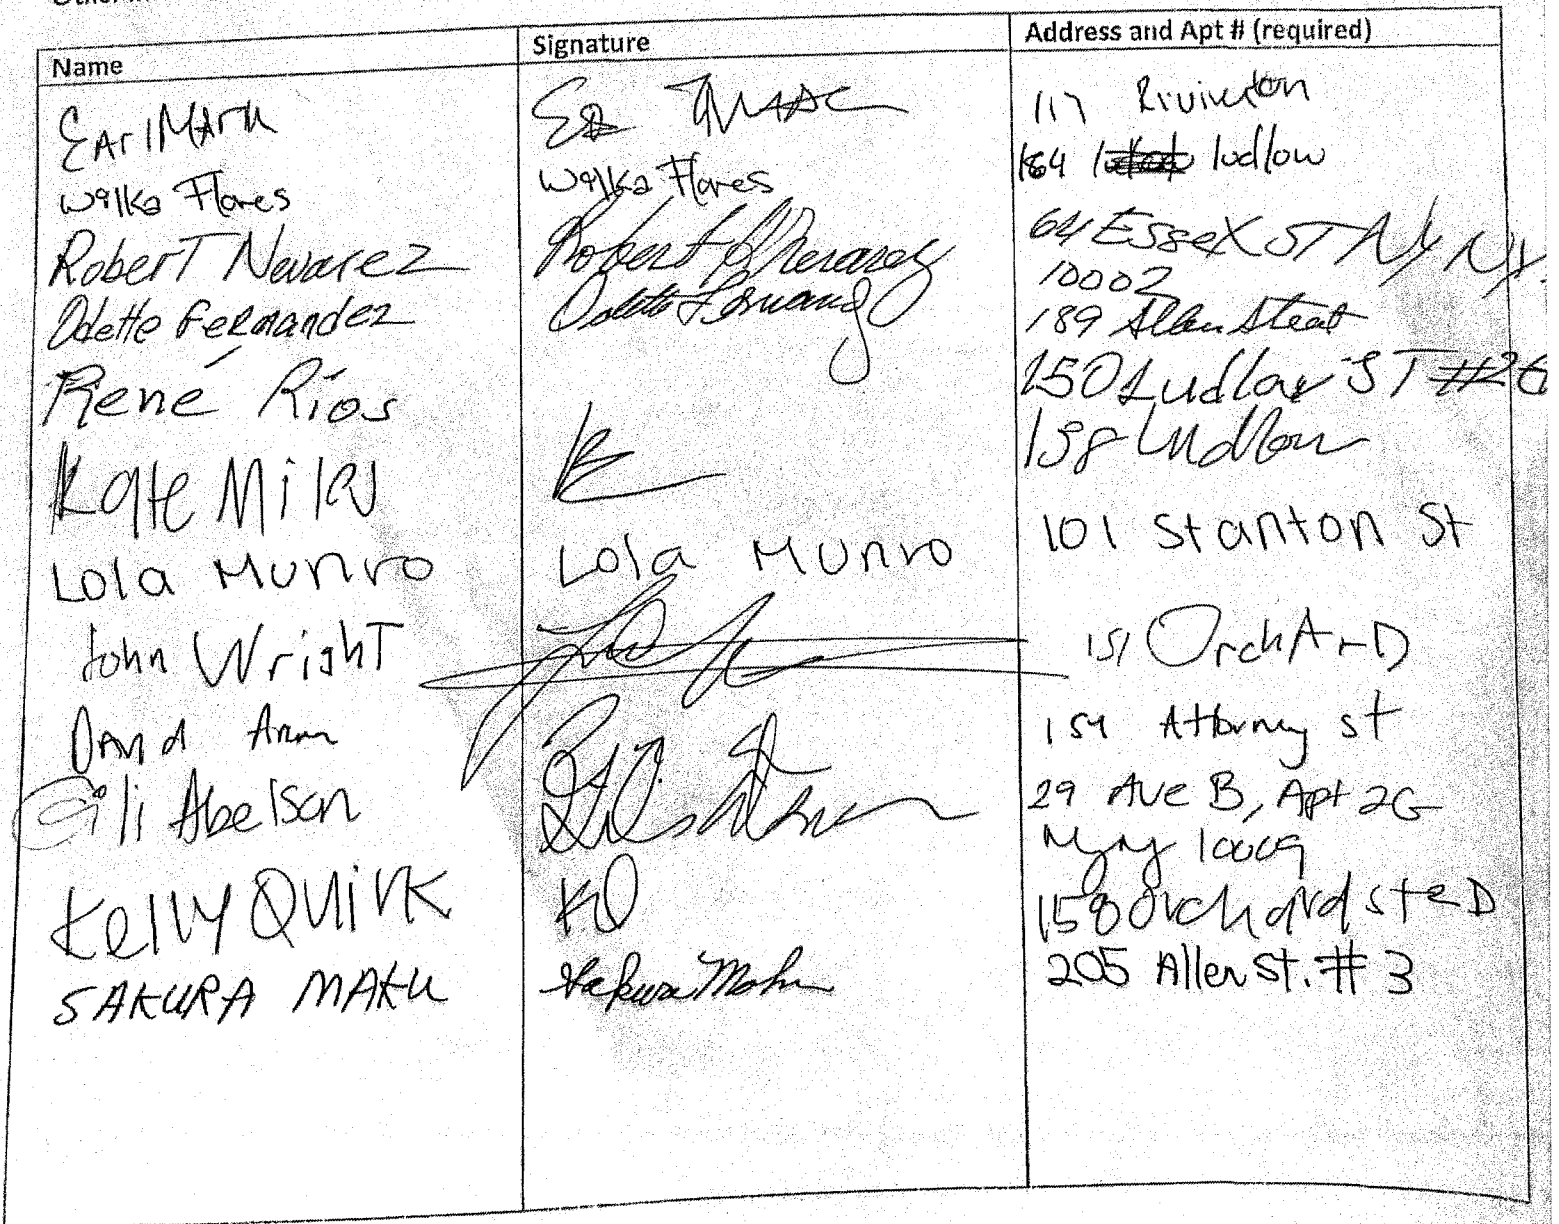 Name Signature Address and Apt # (required)
Earl Mark 117 Rivinton
Wilka Flores Wilka Flores 184 ludlow
Robert Nevarez Robert Nevarez 64 Essex ST NY NY.
10002
Odette Fernandez Odette Fernandez 189 Allen Street
René Ríos 150 Ludlow ST #26
Kate Miles 138 Ludlow
Lola Munro Lola Munro 101 Stanton St
John Wright 151 OrchArD
David 154 Attorney st
Gili Abelson 29 Ave B, Apt 2G
NY NY 10009
Kelly Quirk KQ 158 Orchard ste D
SAKURA MAKU Sakura Maku 205 Allen St. # 3